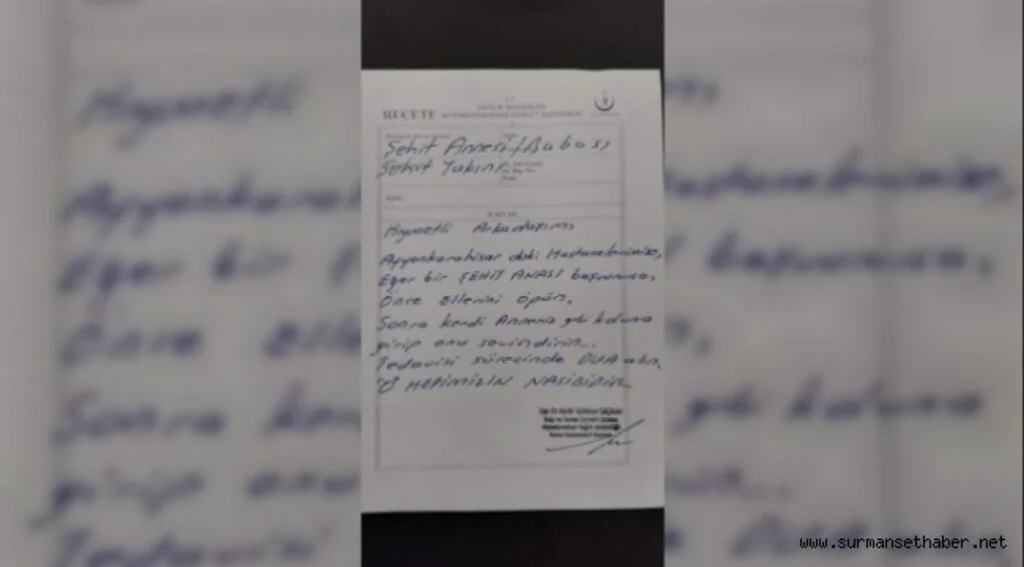 T.C.
SAĞLIK BAKANLIĞI
REÇETE AFYONKARAHİSAR DEVLET HASTANESİ
Şehit Annesi/Babası
Şehit Yakını
İLAÇLAR
Kıymetli Arkadaşım
Afyonkarahisar daki Hastanelerimize,
Eğer bir ŞEHİT ANASI başvurursa,
Önce ellerini öpün,
Sonra kendi Anneniz gibi koluna
girip onu sevindirin...
Tedavisi sürecinde DUA alın,
O HEPİMİZİN NASİBİDİR
www.surmansethaber.net